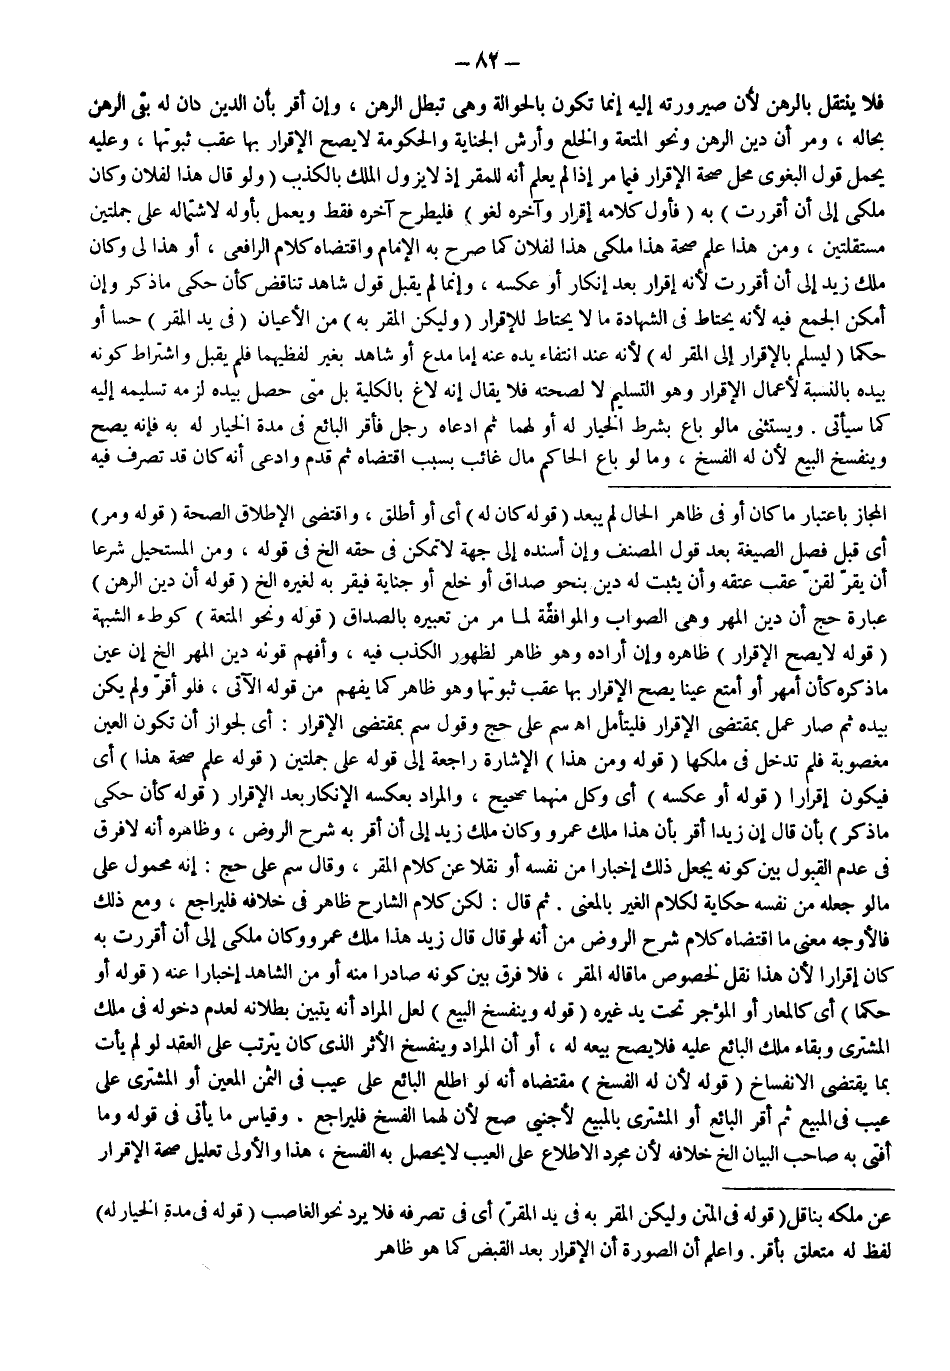 — ٨٢ —
فلا ينتقل بالرهن لأن صيرورته إليه إنما تكون بالحوالة وهى تبطل الرهن ، وإن أقر بأن الدين دان له بقى الرهن
بحاله ، ومر أن دين الرهن ونحو المتعة والخلع وأرش الجناية والحكومة لايصح الإقرار بها عقب ثبوتها ، وعليه
يحمل قول البغوى محل صحة الإقرار فيما مر إذا لم يعلم أنه للمقر إذ لايزول الملك بالكذب ( ولو قال هذا لفلان وكان
ملكى إلى أن أقررت ) به ( فأول كلامه إقرار وآخره لغو ) فليطرح آخره فقط ويعمل بأوله لاشتماله على جملتين
مستقلتين ، ومن هذا علم صحة هذا ملكى هذا لفلان كما صرح به الإمام واقتضاه كلام الرافعى ، أو هذا لى وكان
ملك زيد إلى أن أقررت لأنه إقرار بعد إنكار أو عكسه ، وإنما لم يقبل قول شاهد تناقض كأن حكى ماذكر وإن
أمكن الجمع فيه لأنه يحتاط فى الشهادة ما لا يحتاط للإقرار ( وليكن المقر به ) من الأعيان ( فى يد المقر ) حسا أو
حكما ( ليسلم بالإقرار إلى المقر له ) لأنه عند انتفاء يده عنه إما مدع أو شاهد بغير لفظيهما فلم يقبل واشتراط كونه
بيده بالنسبة لأعمال الإقرار وهو التسليم لا لصحته فلا يقال إنه لاغ بالكلية بل متى حصل بيده لزمه تسليمه إليه
كما سيأتى . ويستثنى مالو باع بشرط الخيار له أو لهما ثم ادعاه رجل فأقر البائع فى مدة الخيار له به فإنه يصح
وينفسخ البيع لأن له الفسخ ، وما لو باع الحاكم مال غائب بسبب اقتضاه ثم قدم وادعى أنه كان قد تصرف فيه
المجاز باعتبار ما كان أو فى ظاهر الحال لم يبعد ( قوله كان له ) أى أو أطلق ، واقتضى الإطلاق الصحة ( قوله ومر)
أى قبل فصل الصيغة بعد قول المصنف وإن أسنده إلى جهة لاتمكن فى حقه الخ فى قوله ، ومن المستحيل شرعا
أن يقرّ لقنّ عقب عتقه وأن يثبت له دين بنحو صداق أو خلع أو جناية فيقر به لغيره الخ ( قوله أن دين الرهن )
عبارة حج أن دين المهر وهى الصواب والموافقة لما مر من تعبيره بالصداق ( قوله ونحو المتعة ) كوطء الشبهة
( قوله لايصح الإقرار ) ظاهره وإن أراده وهو ظاهر لظهور الكذب فيه ، وأفهم قوله دين المهر الخ إن عين
ماذكره كأن أمهر أو أمتع عينا يصح الإقرار بها عقب ثبوتها وهو ظاهر كما يفهم من قوله الآتى ، فلو أقرّ ولم يكن
بيده ثم صار عمل بمقتضى الإقرار فليتأمل اه سم على حج وقول سم بمقتضى الإقرار : أى لجواز أن تكون العين
مغصوبة فلم تدخل فى ملكها ( قوله ومن هذا ) الإشارة راجعة إلى قوله على جملتين ( قوله علم صحة هذا ) أى
فيكون إقرارا ( قوله أو عكسه ) أى وكل منهما صحيح ، والمراد بعكسه الإنكار بعد الإقرار ( قوله كأن حكى
ماذكر ) بأن قال إن زيدا أقر بأن هذا ملك عمرو وكان ملك زيد إلى أن أقر به شرح الروض ، وظاهره أنه لافرق
فى عدم القبول بين كونه يجعل ذلك إخبارا من نفسه أو نقلا عن كلام المقر ، وقال سم على حج : إنه محمول على
مالو جعله من نفسه حكاية لكلام الغير بالمعنى . ثم قال : لكن كلام الشارح ظاهر فى خلافه فليراجع ، ومع ذلك
فالأوجه معنى ما اقتضاه كلام شرح الروض من أنه لو قال قال زيد هذا ملك عمرو وكان ملكى إلى أن أقررت به
كان إقرارا لأن هذا نقل لخصوص ماقاله المقر ، فلا فرق بين كونه صادرا منه أو من الشاهد إخبارا عنه ( قوله أو
حكما ) أى كالمعار أو المؤجر تحت يد غيره ( قوله وينفسخ البيع ) لعل المراد أنه يتبين بطلانه لعدم دخوله فى ملك
المشترى وبقاء ملك البائع عليه فلايصح بيعه له ، أو أن المراد وينفسخ الأثر الذى كان يترتب على العقد لو لم يأت
بما يقتضى الانفساخ ( قوله لأن له الفسخ ) مقتضاه أنه لو اطلع البائع على عيب فى الثمن المعين أو المشترى على
عيب فى المبيع ثم أقر البائع أو المشترى بالمبيع لأجنبي صح لأن لهما الفسخ فليراجع . وقياس ما يأتى فى قوله وما
أفتى به صاحب البيان الخ خلافه لأن مجرد الاطلاع على العيب لايحصل به الفسخ ، هذا والأولى تعليل صحة الإقرار
عن ملكه بناقل( قوله فى المتن وليكن المقر به فى يد المقرّ) أى فى تصرفه فلا يرد نحو الغاصب ( قوله فى مدة الخيار له)
لفظ له متعلق بأقر. واعلم أن الصورة أن الإقرار بعد القبض كما هو ظاهر